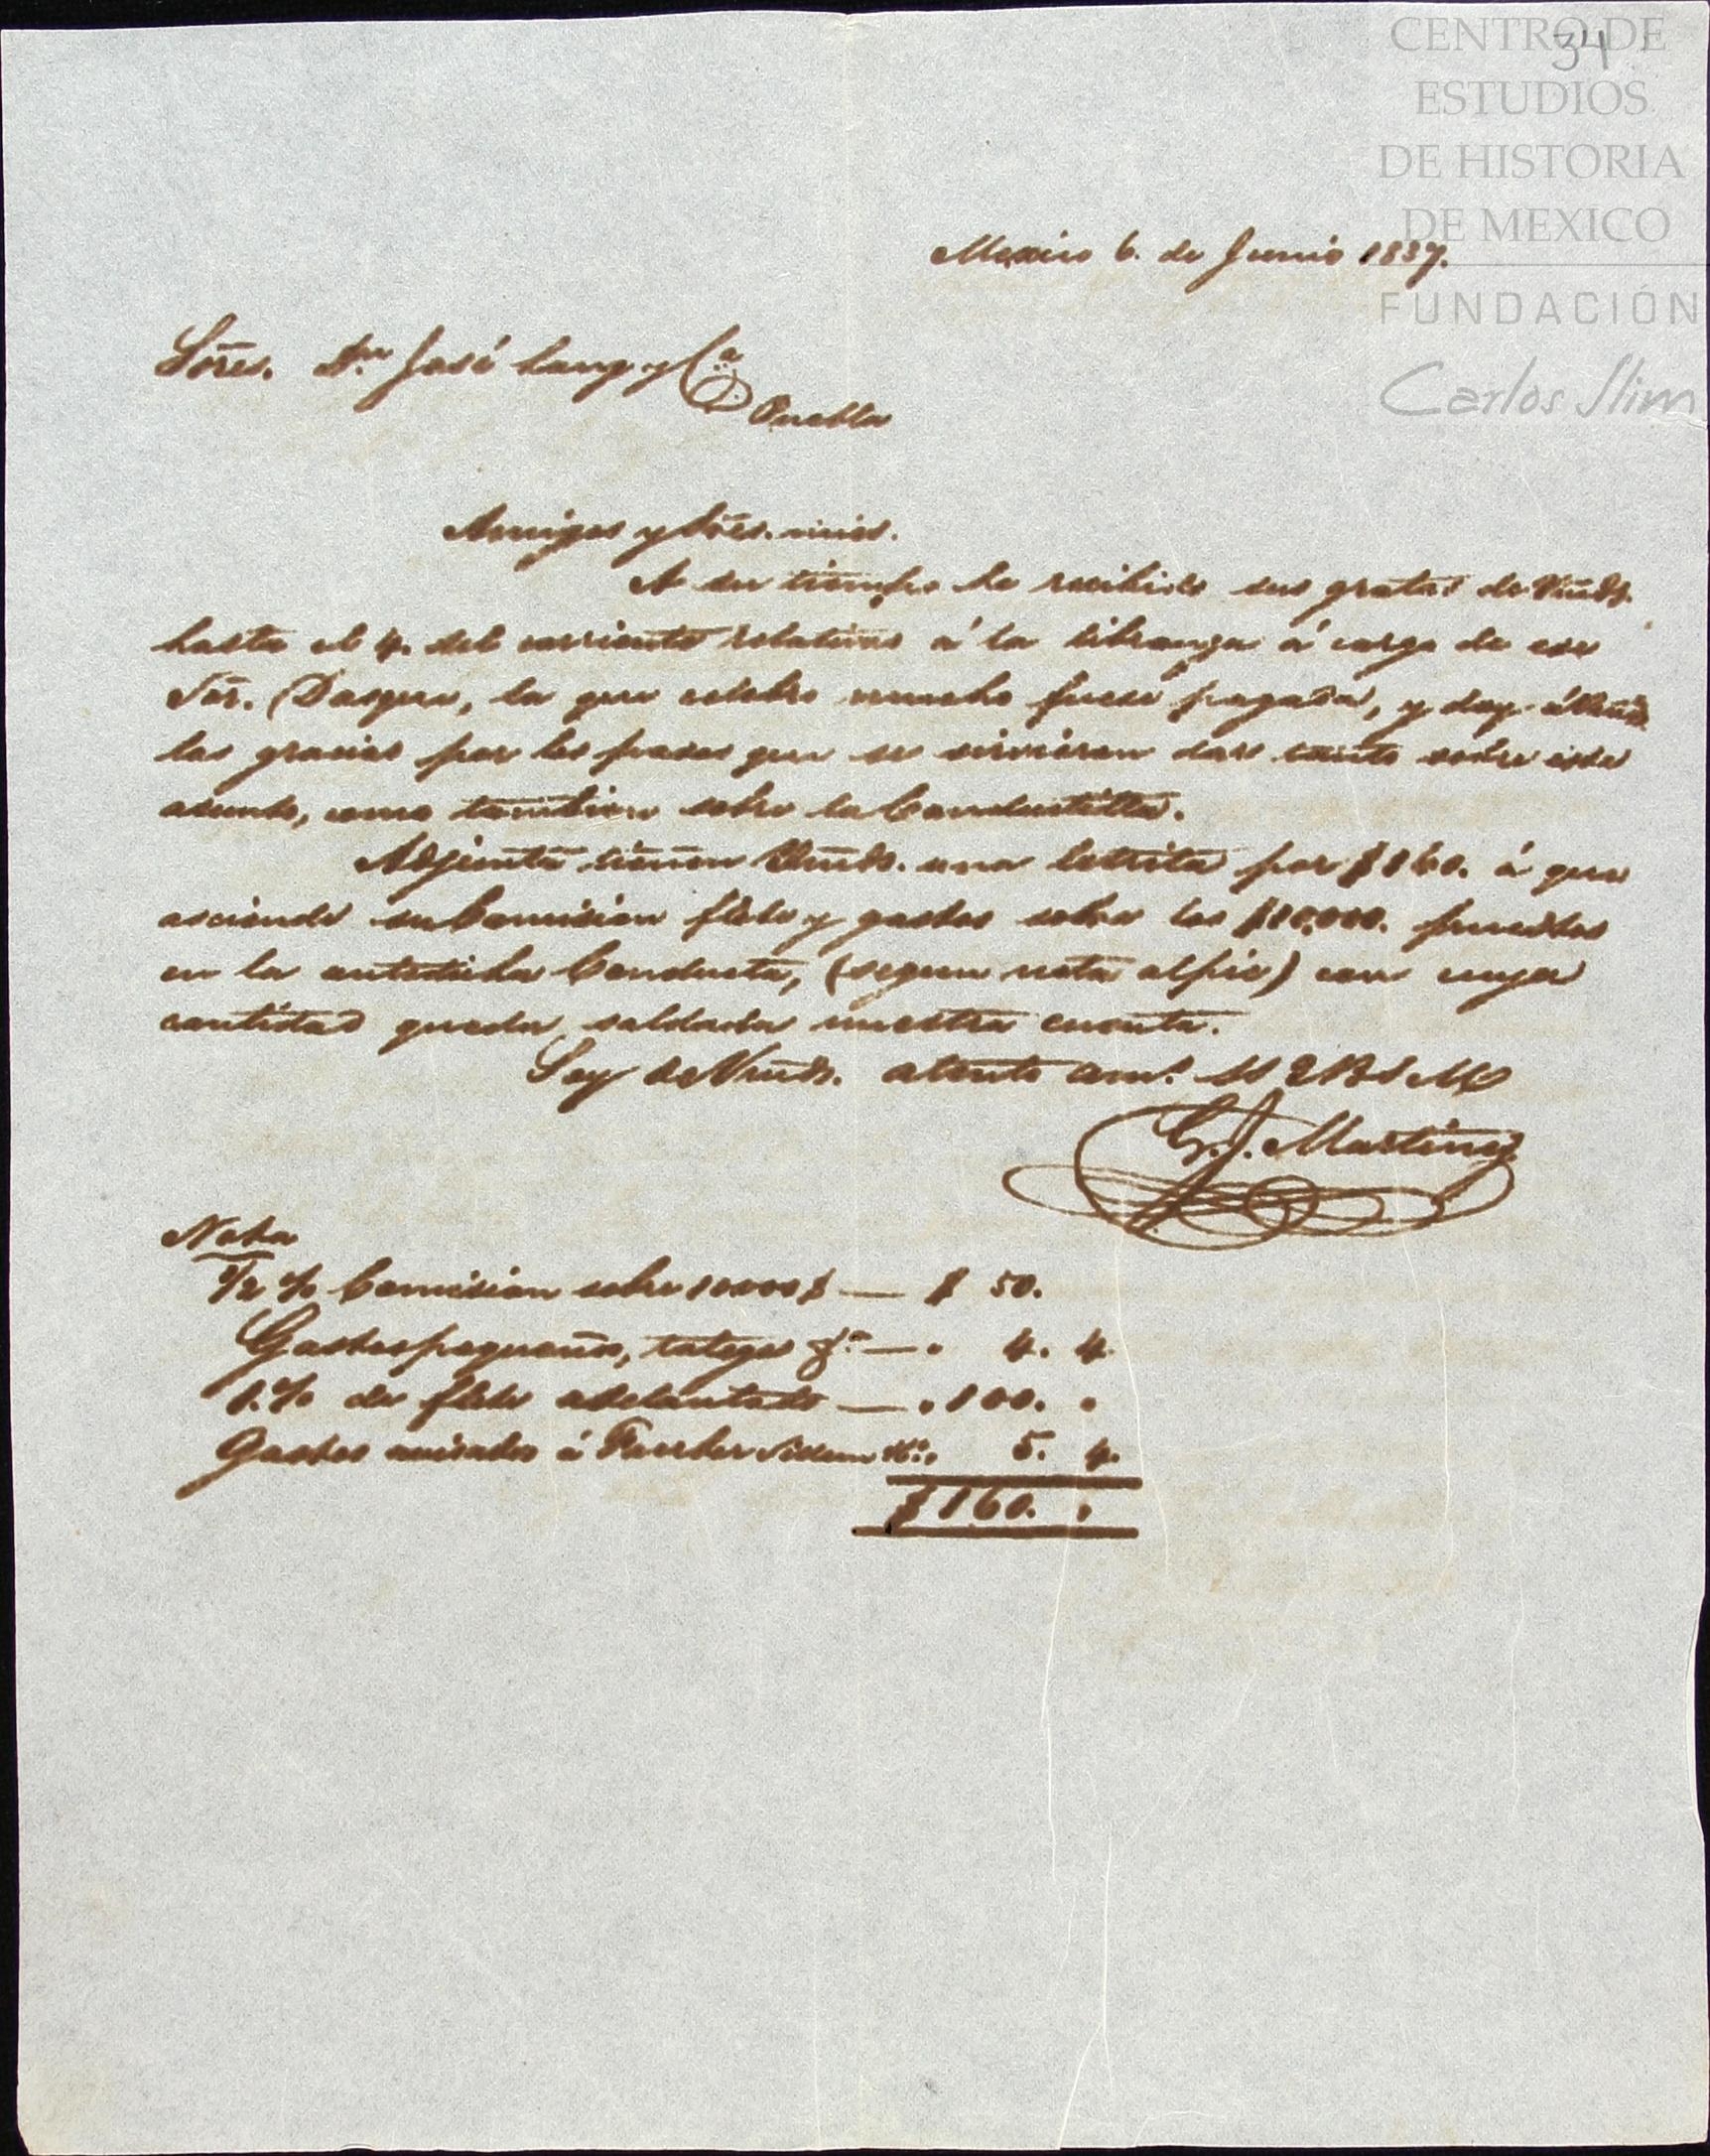 34
CENTRO DE
ESTUDIOS
DE HISTORIA
DE MEXICO
FUNDACIÓN
Carlos Slim
Mexico 6. de Junio 1837.
Sōres. Dn. José Lang y Ca.
Puebla
Amigos y Sōres. mios.
A su tiempo he recibido sus gratas de Vmds.
hasta el 4. del corriente relativas á la libranza á cargo de ese
Sōr. Dasque, la que celebro mucho fuese pagada, y doy á Vmds.
las gracias por los pasos que se sirvieron dar tanto sobre este
asunto, como tambien sobre la Conductilla.
Adjunta tienen Vmds. una letrita por $160. á que
asciende su Comision flete y gastos sobre los $10,000. puestos
en la antedicha Conducta, (segun nota al pie) con cuya
cantidad queda saldada nuestra cuenta.
Soy de Vmds. atento am.o S S Q B S M
G. J. Martinez
Nota
1/2 % Comision sobre 10000 $ — $ 50.
Gastos pequeños, talegas &a — " 4. 4.
1. % de flete adelantado — " 100. "
Gastos avisados á 5. 4.
$ 160. "